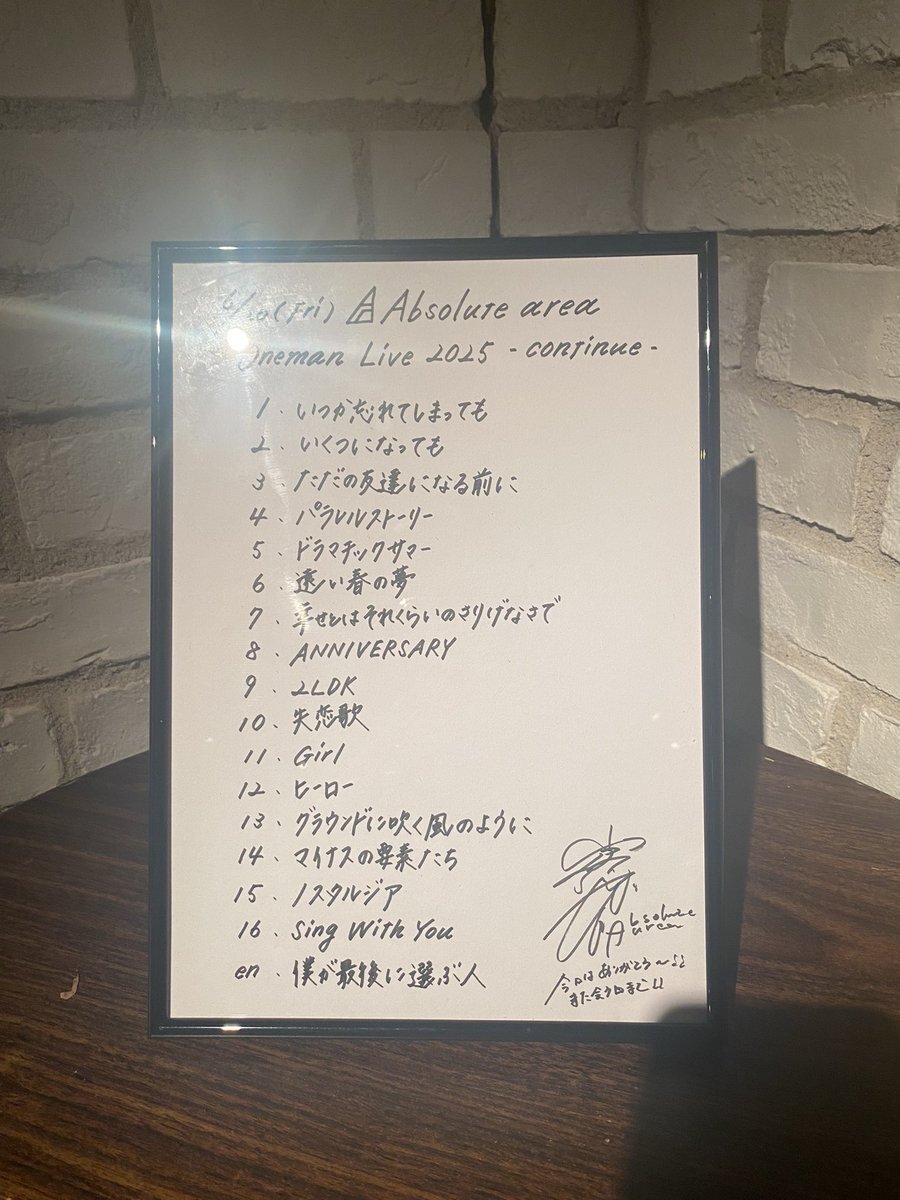 6/20(Fri) Absolute area
Oneman Live 2025 - continue -
1. いつか忘れてしまっても
2. いくつになっても
3. ただの友達になる前に
4. パラレルストーリー
5. ドラマチックサマー
6. 遠い春の夢
7. 幸せとはそれくらいのさりげなさで
8. ANNIVERSARY
9. 2LDK
10. 失恋歌
11. Girl
12. ヒーロー
13. グラウンドに吹く風のように
14. マイナスの要素たち
15. ノスタルジア
16. Sing With You
en. 僕が最後に選ぶ人
Absolute
area
今日はありがとう〜♪♪
また会う日まで!!